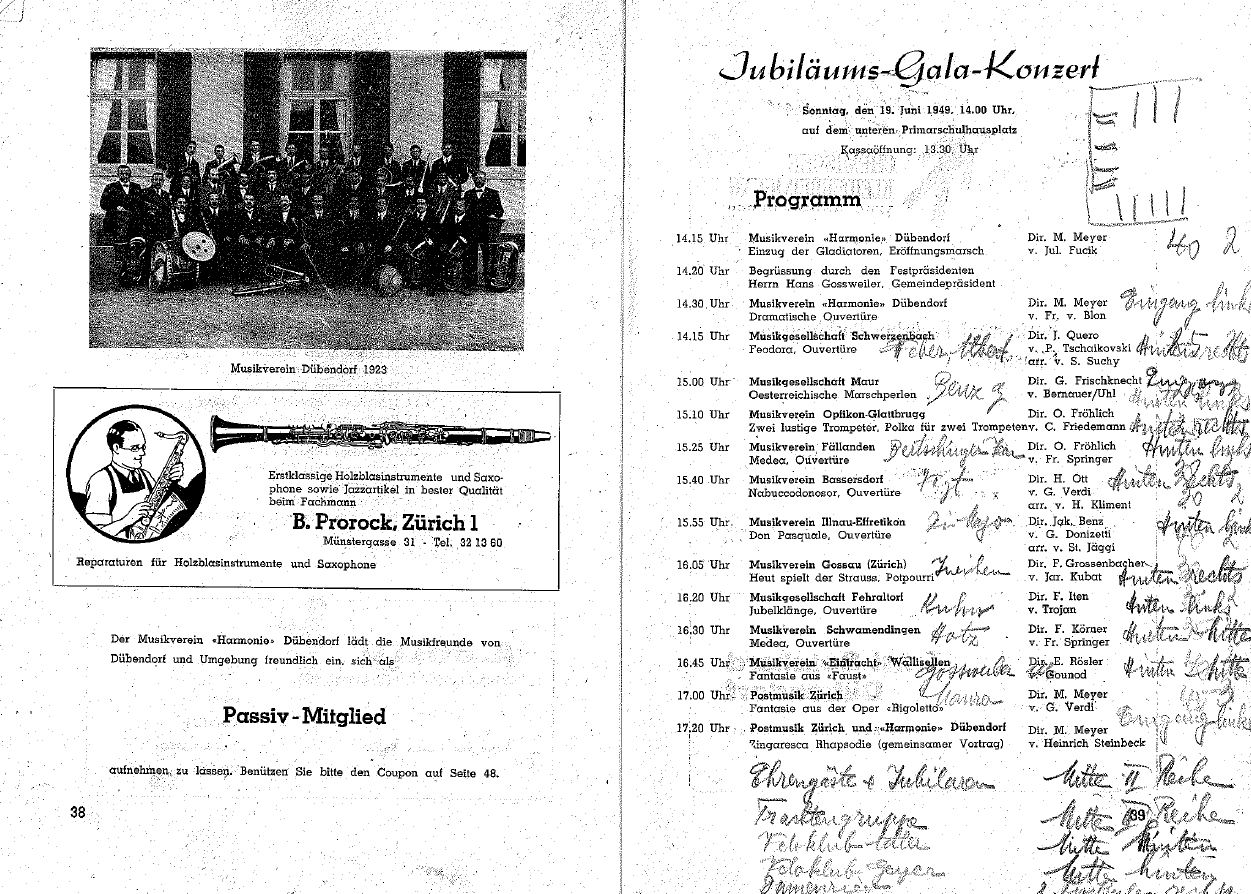 Musikverein Dübendorf 1923
Erstklassige Holzblasinstrumente und Saxo-
phone sowie Jazzartikel in bester Qualität
beim Fachmann
B. Prorock, Zürich 1
Münstergasse 31 - Tel. 32 13 60
Reparaturen für Holzblasinstrumente und Saxophone
Der Musikverein «Harmonie» Dübendorf lädt die Musikfreunde von
Dübendorf und Umgebung freundlich ein, sich als
Passiv-Mitglied
aufnehmen zu lassen. Benützen Sie bitte den Coupon auf Seite 48.
38
Jubiläums-Gala-Konzert
Sonntag, den 19. Juni 1949, 14.00 Uhr,
auf dem unteren Primarschulhausplatz
Kassaöffnung: 13.30 Uhr
Programm
14.15 Uhr Musikverein «Harmonie» Dübendorf Dir. M. Meyer 40 2
Einzug der Gladiatoren, Eröffnungsmarsch v. Jul. Fucik
14.20 Uhr Begrüssung durch den Festpräsidenten
Herrn Hans Gossweiler, Gemeindepräsident
14.30 Uhr Musikverein «Harmonie» Dübendorf Dir. M. Meyer Eingang links
Dramatische Ouvertüre v. Fr. v. Blon
14.15 Uhr Musikgesellschaft Schwerzenbach Dir. J. Quero
Feodora, Ouvertüre v. P. Tschaikovski Hinten rechts
arr. v. S. Suchy
15.00 Uhr Musikgesellschaft Maur Dir. G. Frischknecht Eingang
Oesterreichische Marschperlen Benz v. Bernauer/Uhl hinten links
15.10 Uhr Musikverein Opfikon-Glattbrugg Dir. O. Fröhlich
Zwei lustige Trompeter, Polka für zwei Trompeten v. C. Friedemann Hinten rechts
15.25 Uhr Musikverein Fällanden Dir. O. Fröhlich Hinten links
Medea, Ouvertüre v. Fr. Springer
15.40 Uhr Musikverein Bassersdorf Vogt Dir. H. Ott Hinten Rechts
Nabuccodonosor, Ouvertüre v. G. Verdi
arr. v. H. Kliment
15.55 Uhr Musikverein Illnau-Effretikon Dir. Jak. Benz Hinten links
Don Pasquale, Ouvertüre v. G. Donizetti
arr. v. St. Jäggi
16.05 Uhr Musikverein Gossau (Zürich) Dir. F. Grossenbacher
Heut spielt der Strauss, Potpourri v. Jar. Kubat Hinten Rechts
16.20 Uhr Musikgesellschaft Fehraltorf Kuhn Dir. F. Iten Hinten links
Jubelklänge, Ouvertüre v. Trojan
16.30 Uhr Musikverein Schwamendingen Hotz Dir. F. Körner Hinten Mitte
Medea, Ouvertüre v. Fr. Springer
16.45 Uhr Musikverein «Eintracht» Wallisellen Dir. E. Rösler Hinten Mitte
Fantasie aus «Faust» v. Gounod
17.00 Uhr Postmusik Zürich Dir. M. Meyer
Fantasie aus der Oper «Rigoletto» v. G. Verdi Eingang links
17.20 Uhr Postmusik Zürich und «Harmonie» Dübendorf Dir. M. Meyer
Zingaresca Rhapsodie (gemeinsamer Vortrag) v. Heinrich Steinbeck
Ehrengäste & Jubilaren Mitte II Reihe
Trachtengruppe Mitte Reihe
39
Veloklub Mitte Hinten
Veloklub Geyer Mitte hinten